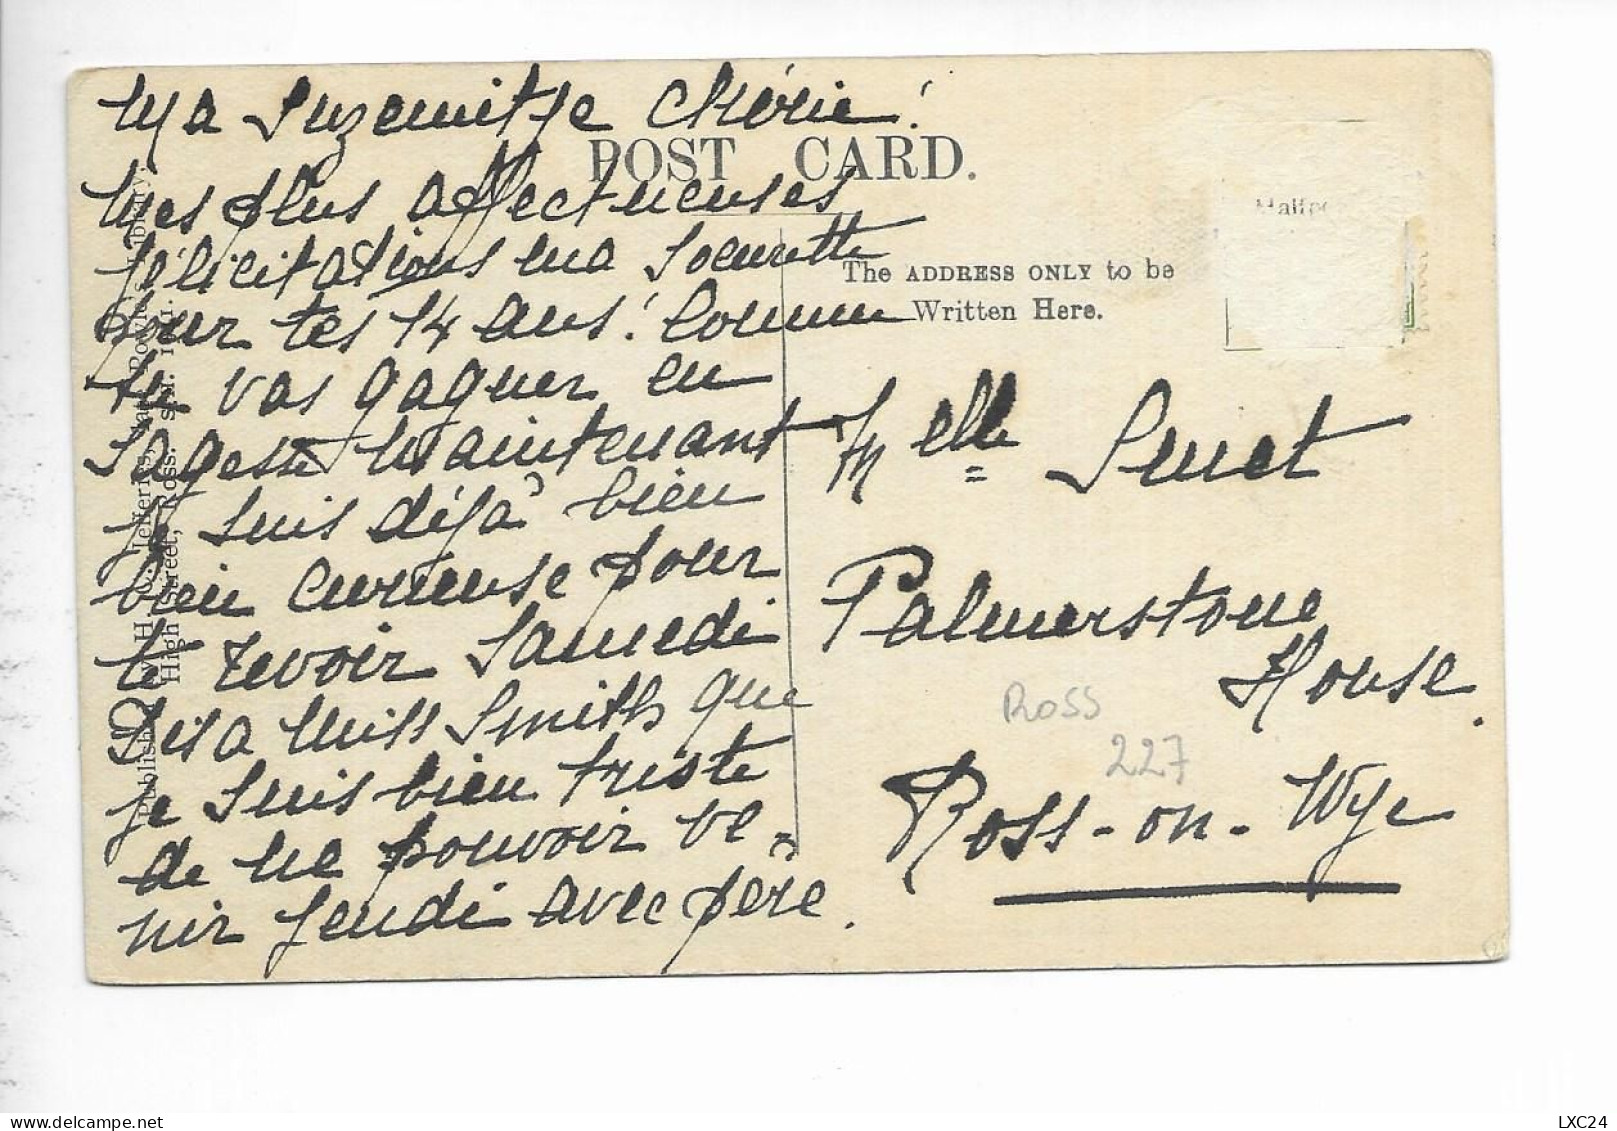 Ma Suzemitje Chérie!
POST CARD.
Mes plus affectueuses
félicitations ma soeurette
pour tes 14 ans! Comme
tu vas gagner en
sagesse maintenant
je suis déjà bien
bien curieuse pour
te revoir Samedi
Dis a Miss Smith que
je suis bien triste
de ne pouvoir ve-
nir Jeudi avec père.
The ADDRESS ONLY to be
Written Here.
Melle Smet
Palmerstone
House.
Ross-on-Wye
Ross
227
High Street, Ross.
www.delcampe.net
LXC24